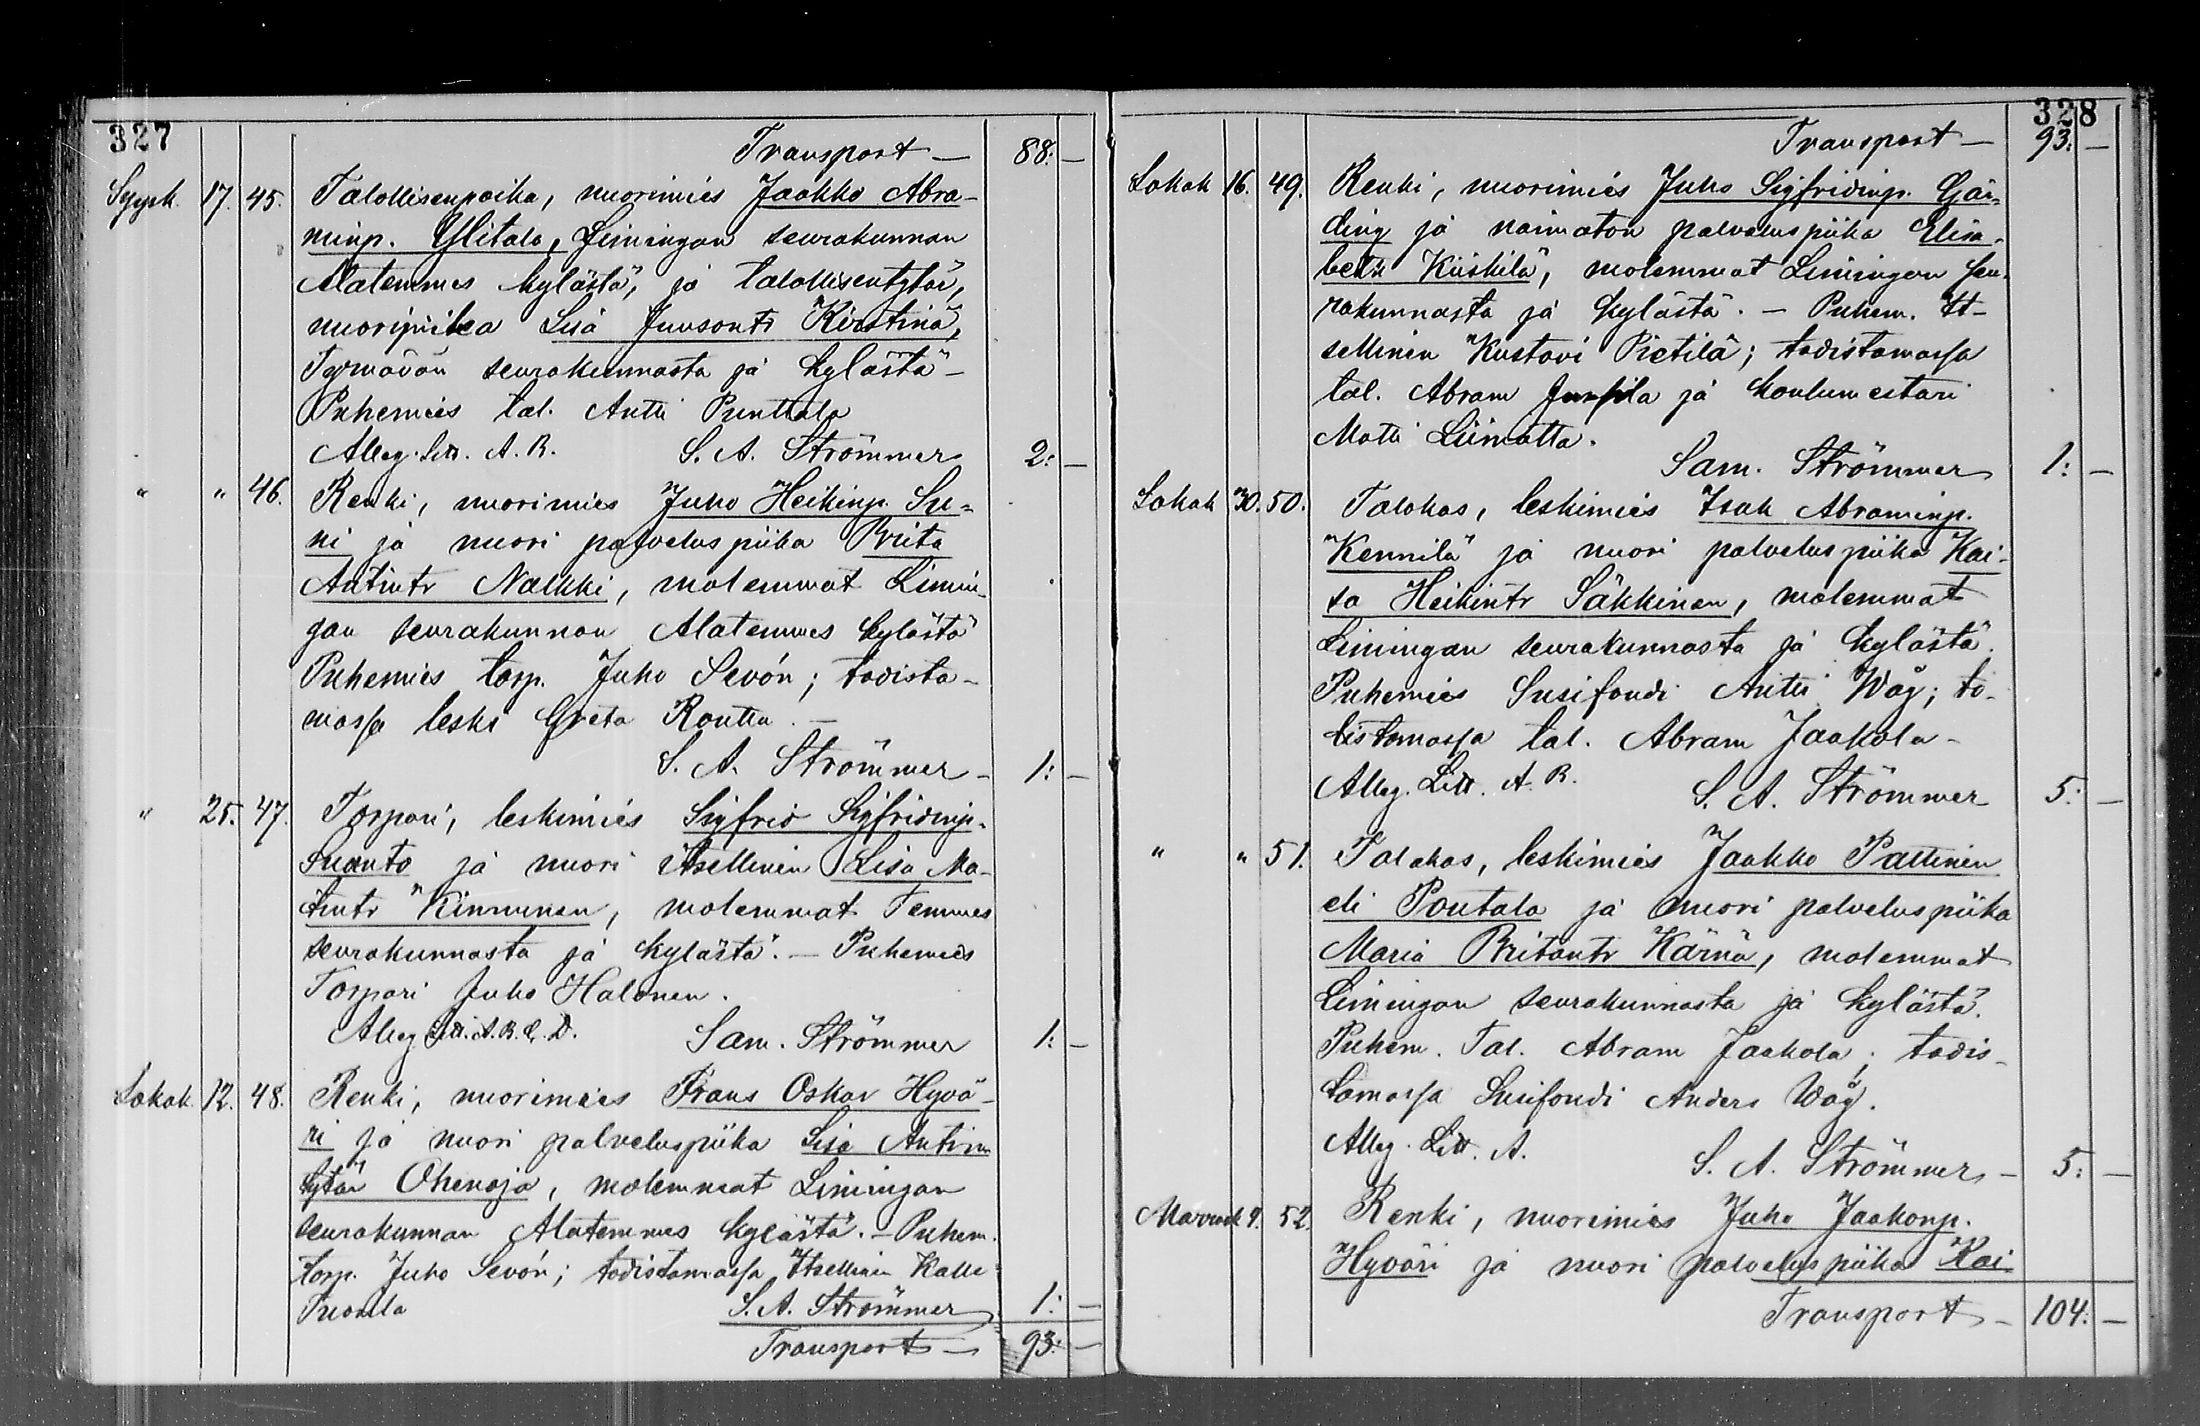 327
Transport — 88: —
Syysk. 17. 45. Talollisenpoika, nuorimies Jaakko Abra-
minp. Ylitalo, Limingan seurakunnan
Alatemmes kylästä, ja talollisentytär,
nuoripiika Lisa Juusontr Kirstinä,
Tyrnävän seurakunnasta ja kylästä –
Puhemies tal. Antti Punttala
Alleg. Litt. A. B. S. A. Strömmer 2: —
" " 46. Renki, nuorimies Juho Heikinp. Su-
ni ja nuori palveluspiika Briita
Antintr Nalkki, molemmat Limin-
gan seurakunnan Alatemmes kylästä
Puhemies torp. Juho Sevón; todista-
massa leski Greta Routtu. —
S. A. Strömmer – 1: —
" 25. 47. Torpari, leskimies Sigfrid Sigfridinp.
Suanto ja nuori itsellinen Lisa Ma-
tintr Kinnunen, molemmat Temmes
seurakunnasta ja kylästä. — Puhemies
Torpari Juho Halonen.
Alleg. Litt. A. B. C. D. Sam. Strömmer 1: —
Lokak. 12. 48. Renki, nuorimies Frans Oskar Hyvä-
ri ja nuori palveluspiika Lisa Antin
tytär Ohenoja, molemmat Limingan
seurakunnan Alatemmes kylästä. – Puhem.
torp. Juho Sevón; todistamassa Itsellinen Kalle
Tuomla S. A. Strömmer 1: —
Transport — 93: —
328
Transport — 93: —
Lokak 16. 49. Renki, nuorimies Juho Sigfridinp. Gär-
ding ja naimaton palveluspiika Elisa-
beth Kiiskilä, molemmat Limingan seu-
rakunnasta ja kylästä. — Puhem. It-
sellinen Kustavi Pietilä; todistamassa
tal. Abram Junsila ja koulumestari
Matti Liimatta.
Sam. Strömmer 1: —
Lokak 30. 50. Talokas, leskimies Isak Abraminp.
Kennilä ja nuori palveluspiika Kai-
sa Heikintr Säkkinen, molemmat
Limingan seurakunnasta ja kylästä.
Puhemies Susifoudi Antti Wåg; to-
distamassa tal. Abram Jaakola –
Alleg. Litt. A. B. S. A. Strömmer 5: —
" " 51. Talokas, leskimies Jaakko Pallinen
eli Poutala ja nuori palveluspiika
Maria Britantr Kärnä, molemmat
Limingan seurakunnasta ja kylästä.
Puhem. Tal. Abram Jaakola; todis-
tamassa Susifoudi Anders Wåg.
Alleg. Litt. A. S. A. Strömmer – 5: —
Marrask 9. 52. Renki, nuorimies Juho Jaakonp.
Hyväri ja nuori palveluspiika Kai-
Transport – 104: —